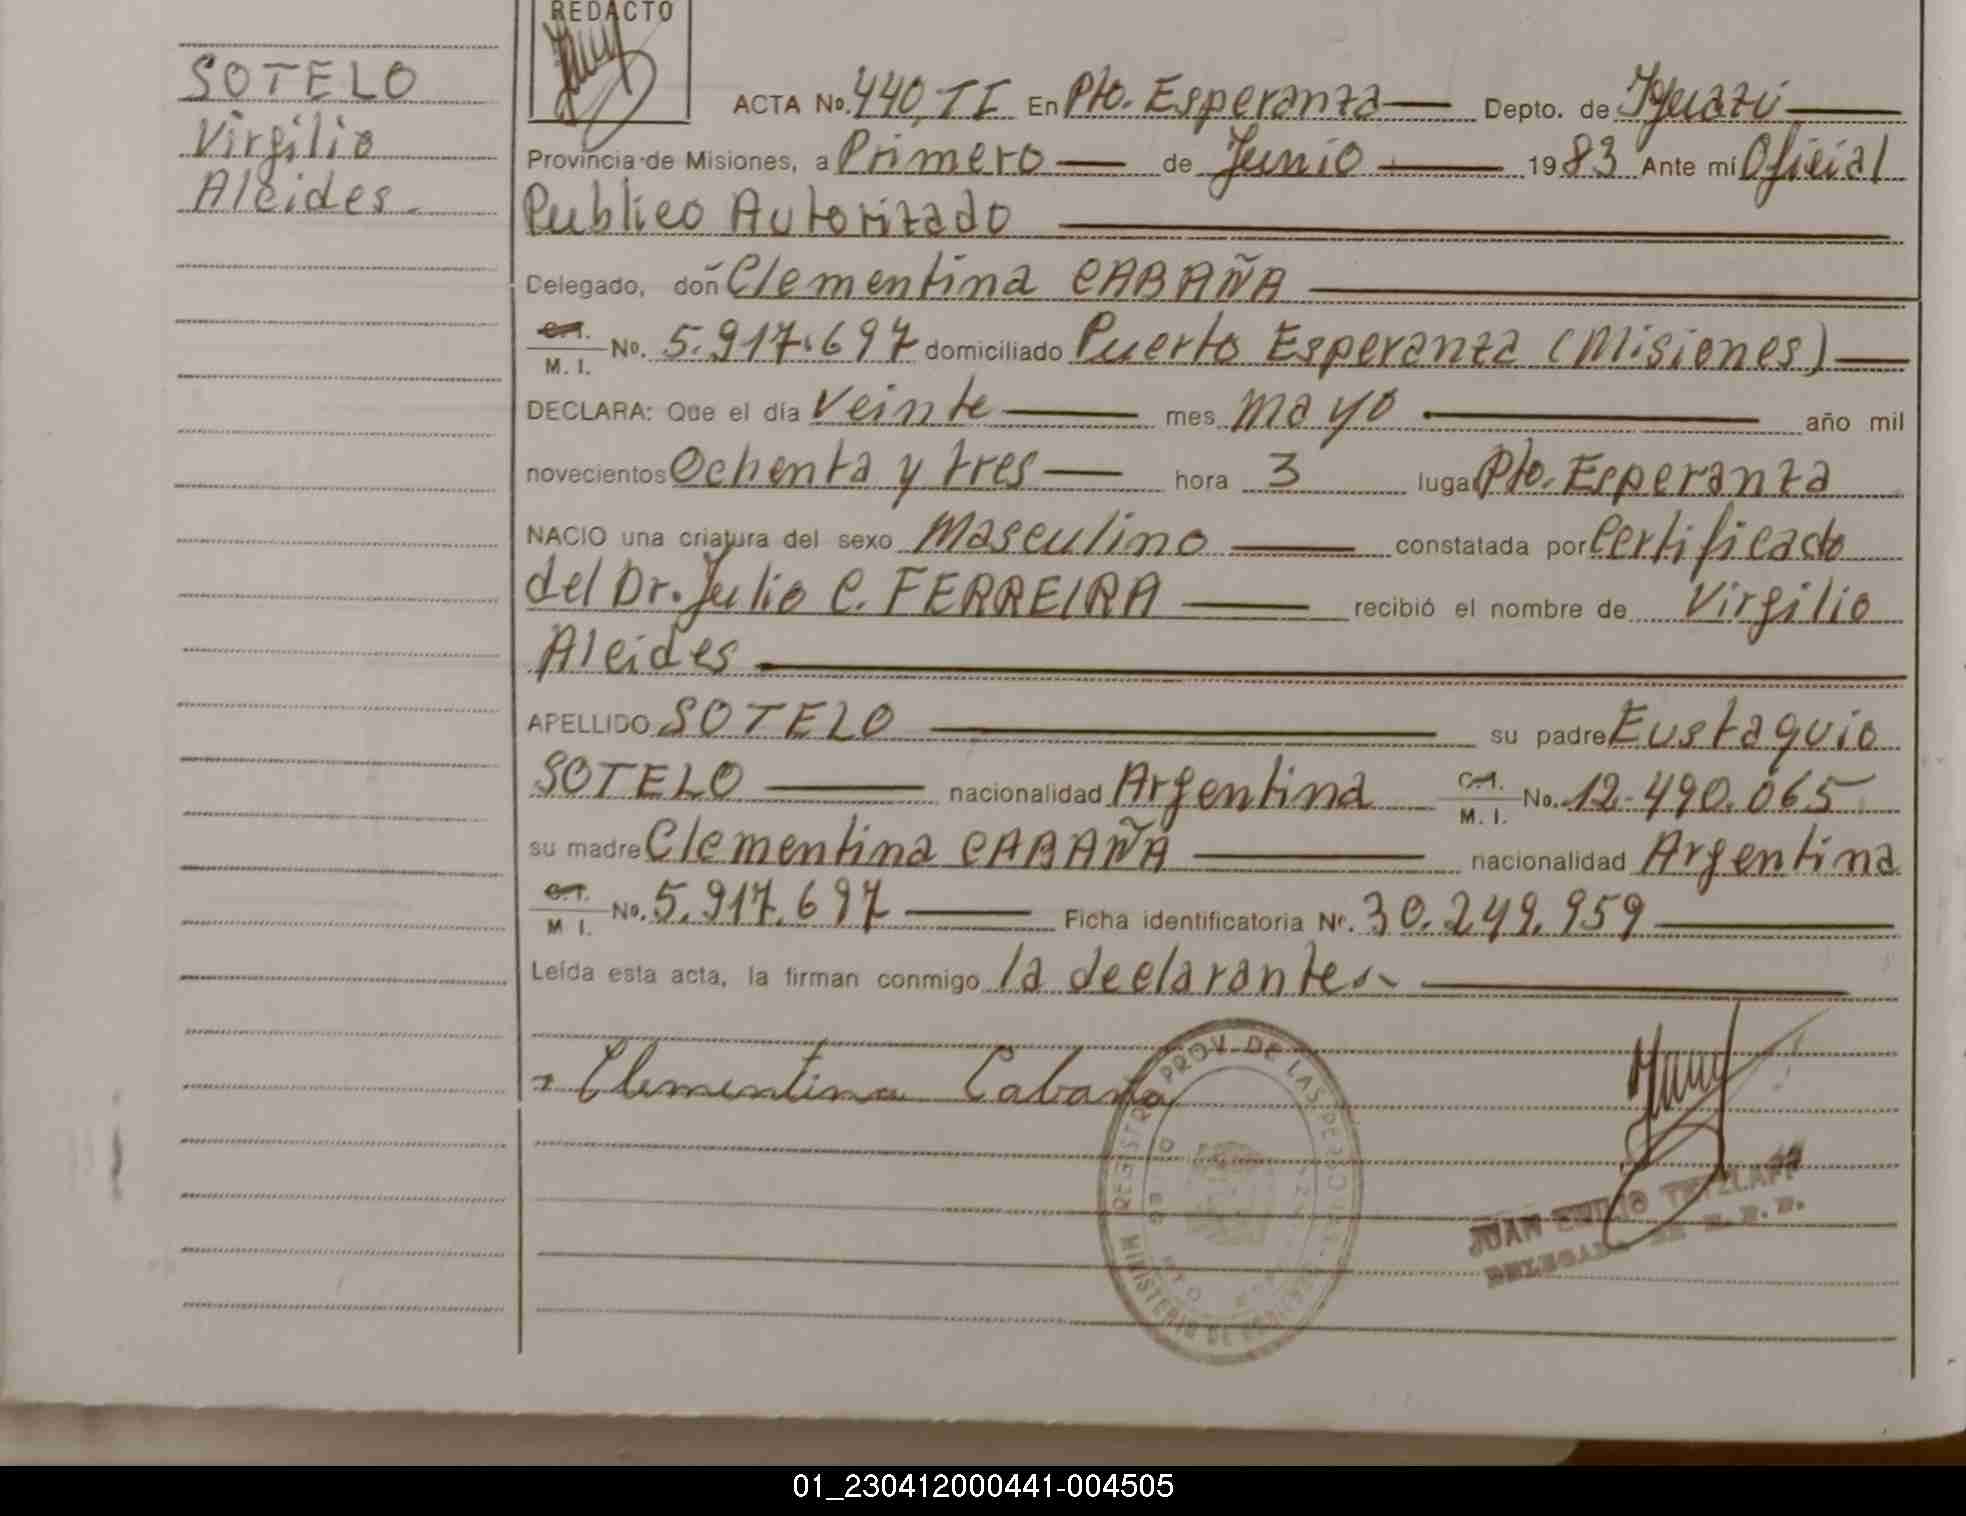 REDACTO
SOTELO
Virgilio
Alcides.
ACTA No. 440, TI En Pto. Esperanza Depto. de Iguazú
Provincia de Misiones, a Primero de Junio 1983 Ante mí Oficial
Publico Autorizado
Delegado, don Clementina CABAÑA
C.I.
M. I. No. 5.917.697 domiciliado Puerto Esperanza (Misiones)
DECLARA: Que el día veinte mes mayo año mil
novecientos Ochenta y tres hora 3 lugar Pto. Esperanza
NACIO una criatura del sexo Masculino constatada por Certificado
del Dr. Julio C. FERREIRA recibió el nombre de Virgilio
Alcides
APELLIDO SOTELO su padre Eustaquio
SOTELO nacionalidad Argentina C.I. M. I. No. 12.490.065
su madre Clementina CABAÑA nacionalidad Argentina
C.I.
M. I. No. 5.917.697 Ficha identificatoria Nr. 30.249.959
Leída esta acta, la firman conmigo la declarante
Clementina Cabaña
REGISTRO PROV. DE LAS PERSONAS
MINISTERIO DE GOBIERNO
JUAN EMILIO TETZLAFF
DELEGADO